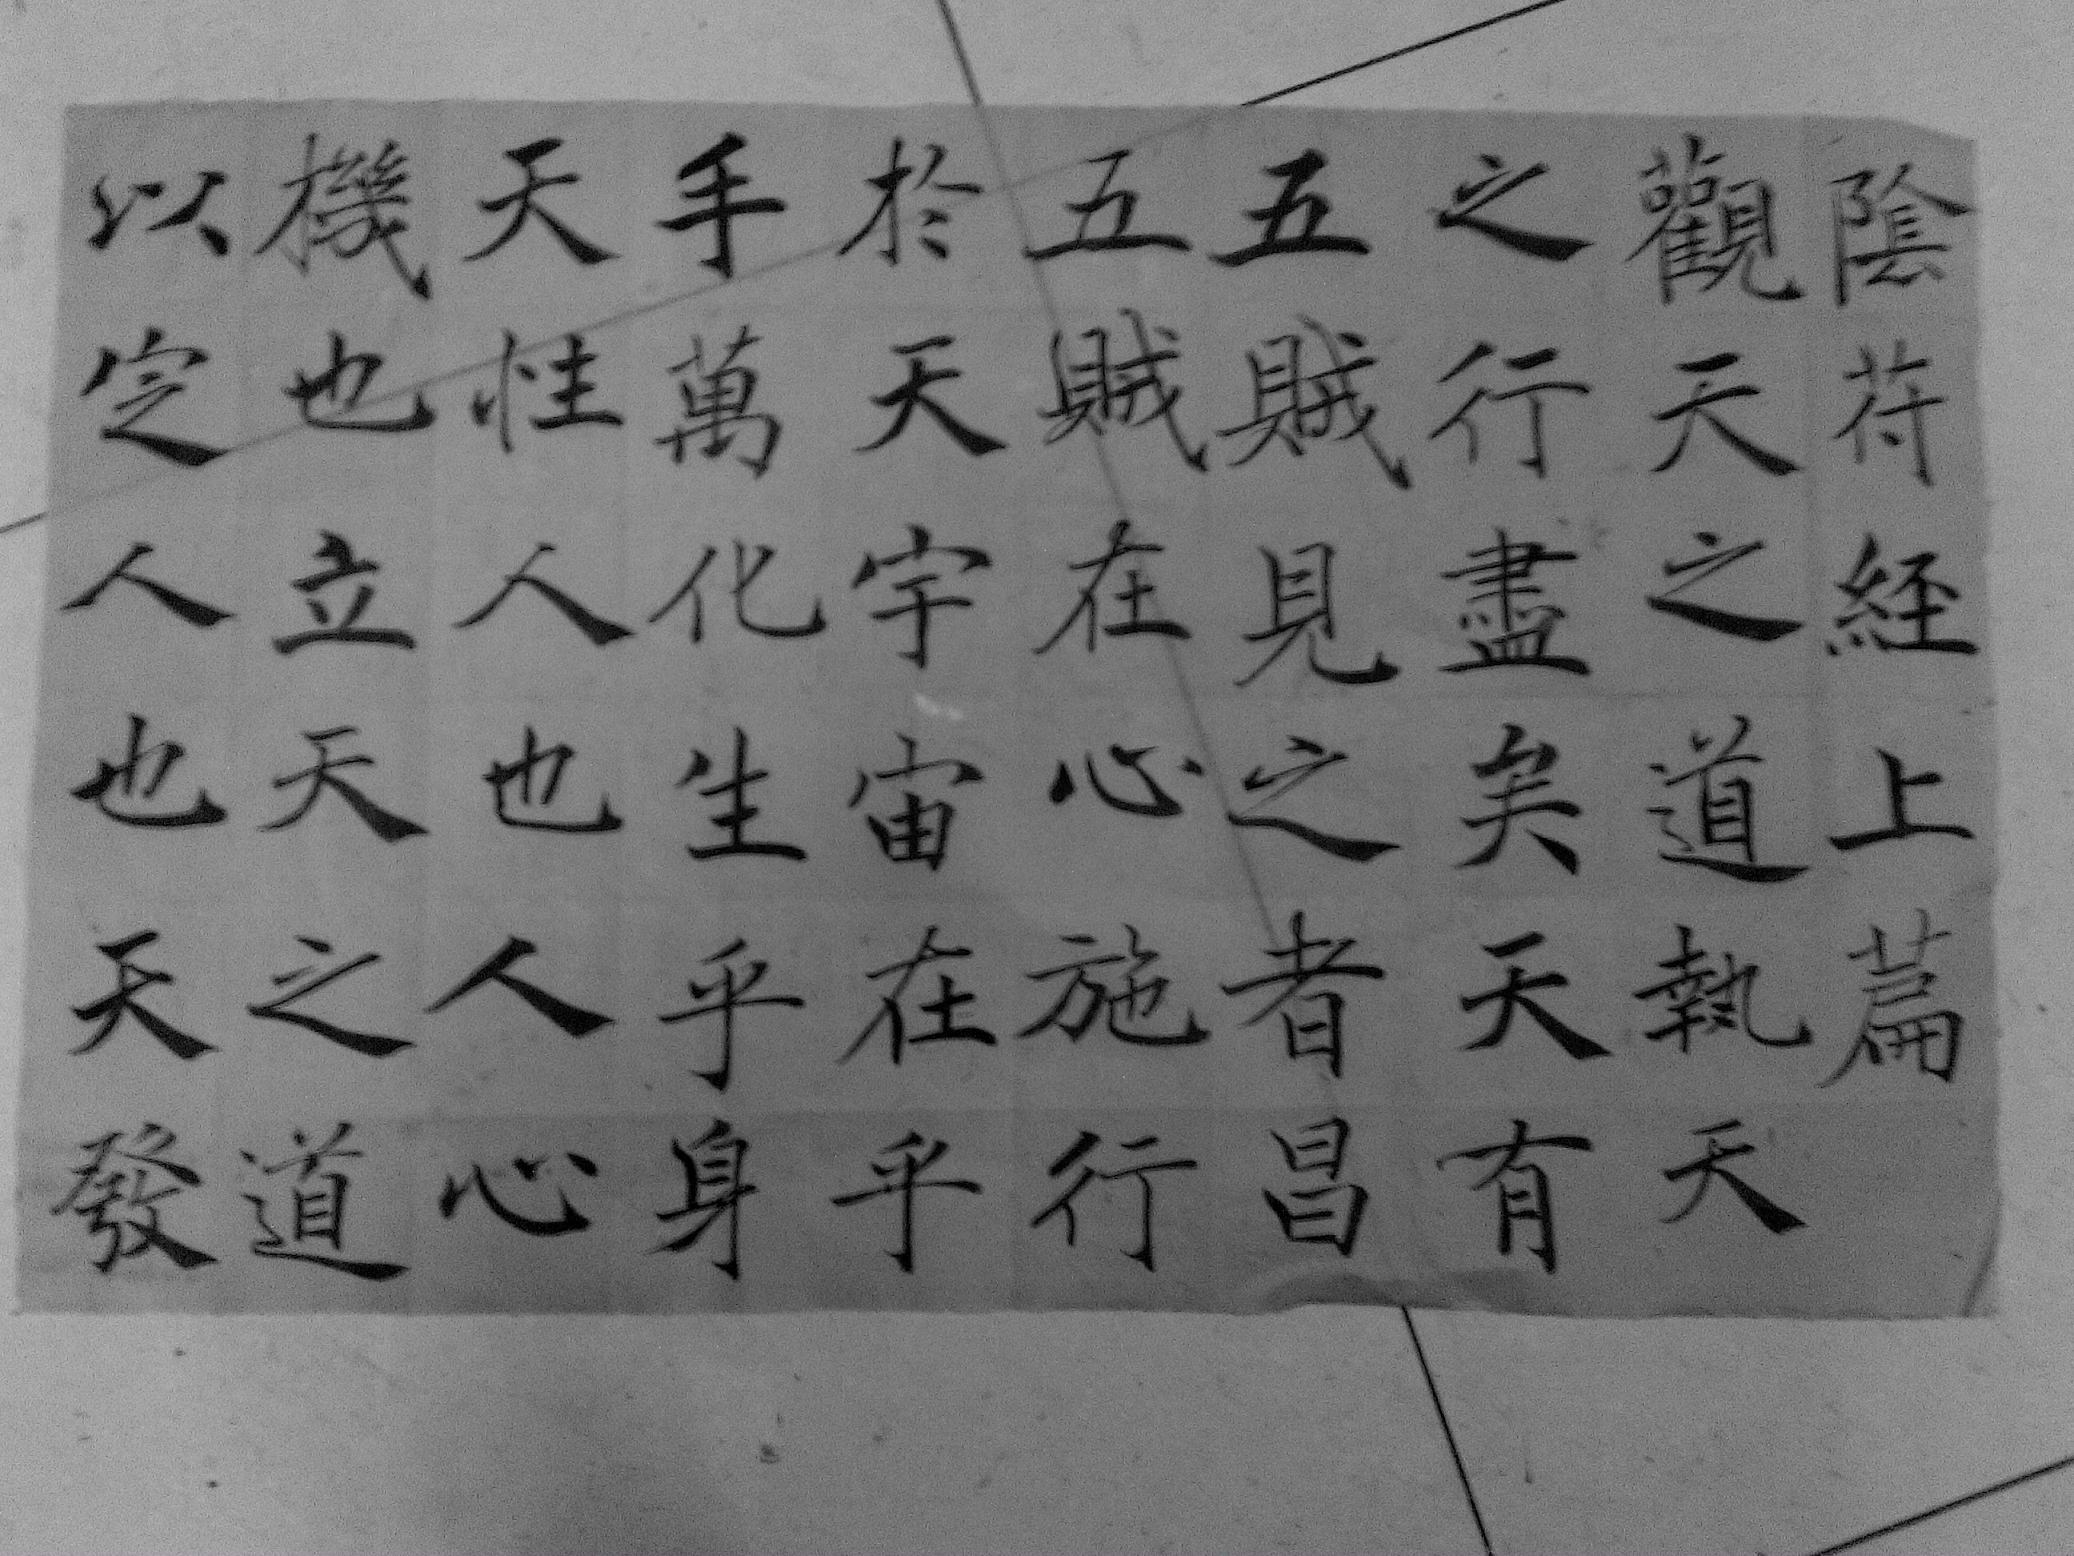 陰符経上篇
觀天之道執天
之行盡矣天有
五賊見之者昌
五賊在心施行
於天宇宙在乎
手萬化生乎身
天性人也人心
機也立天之道
以定人也天發